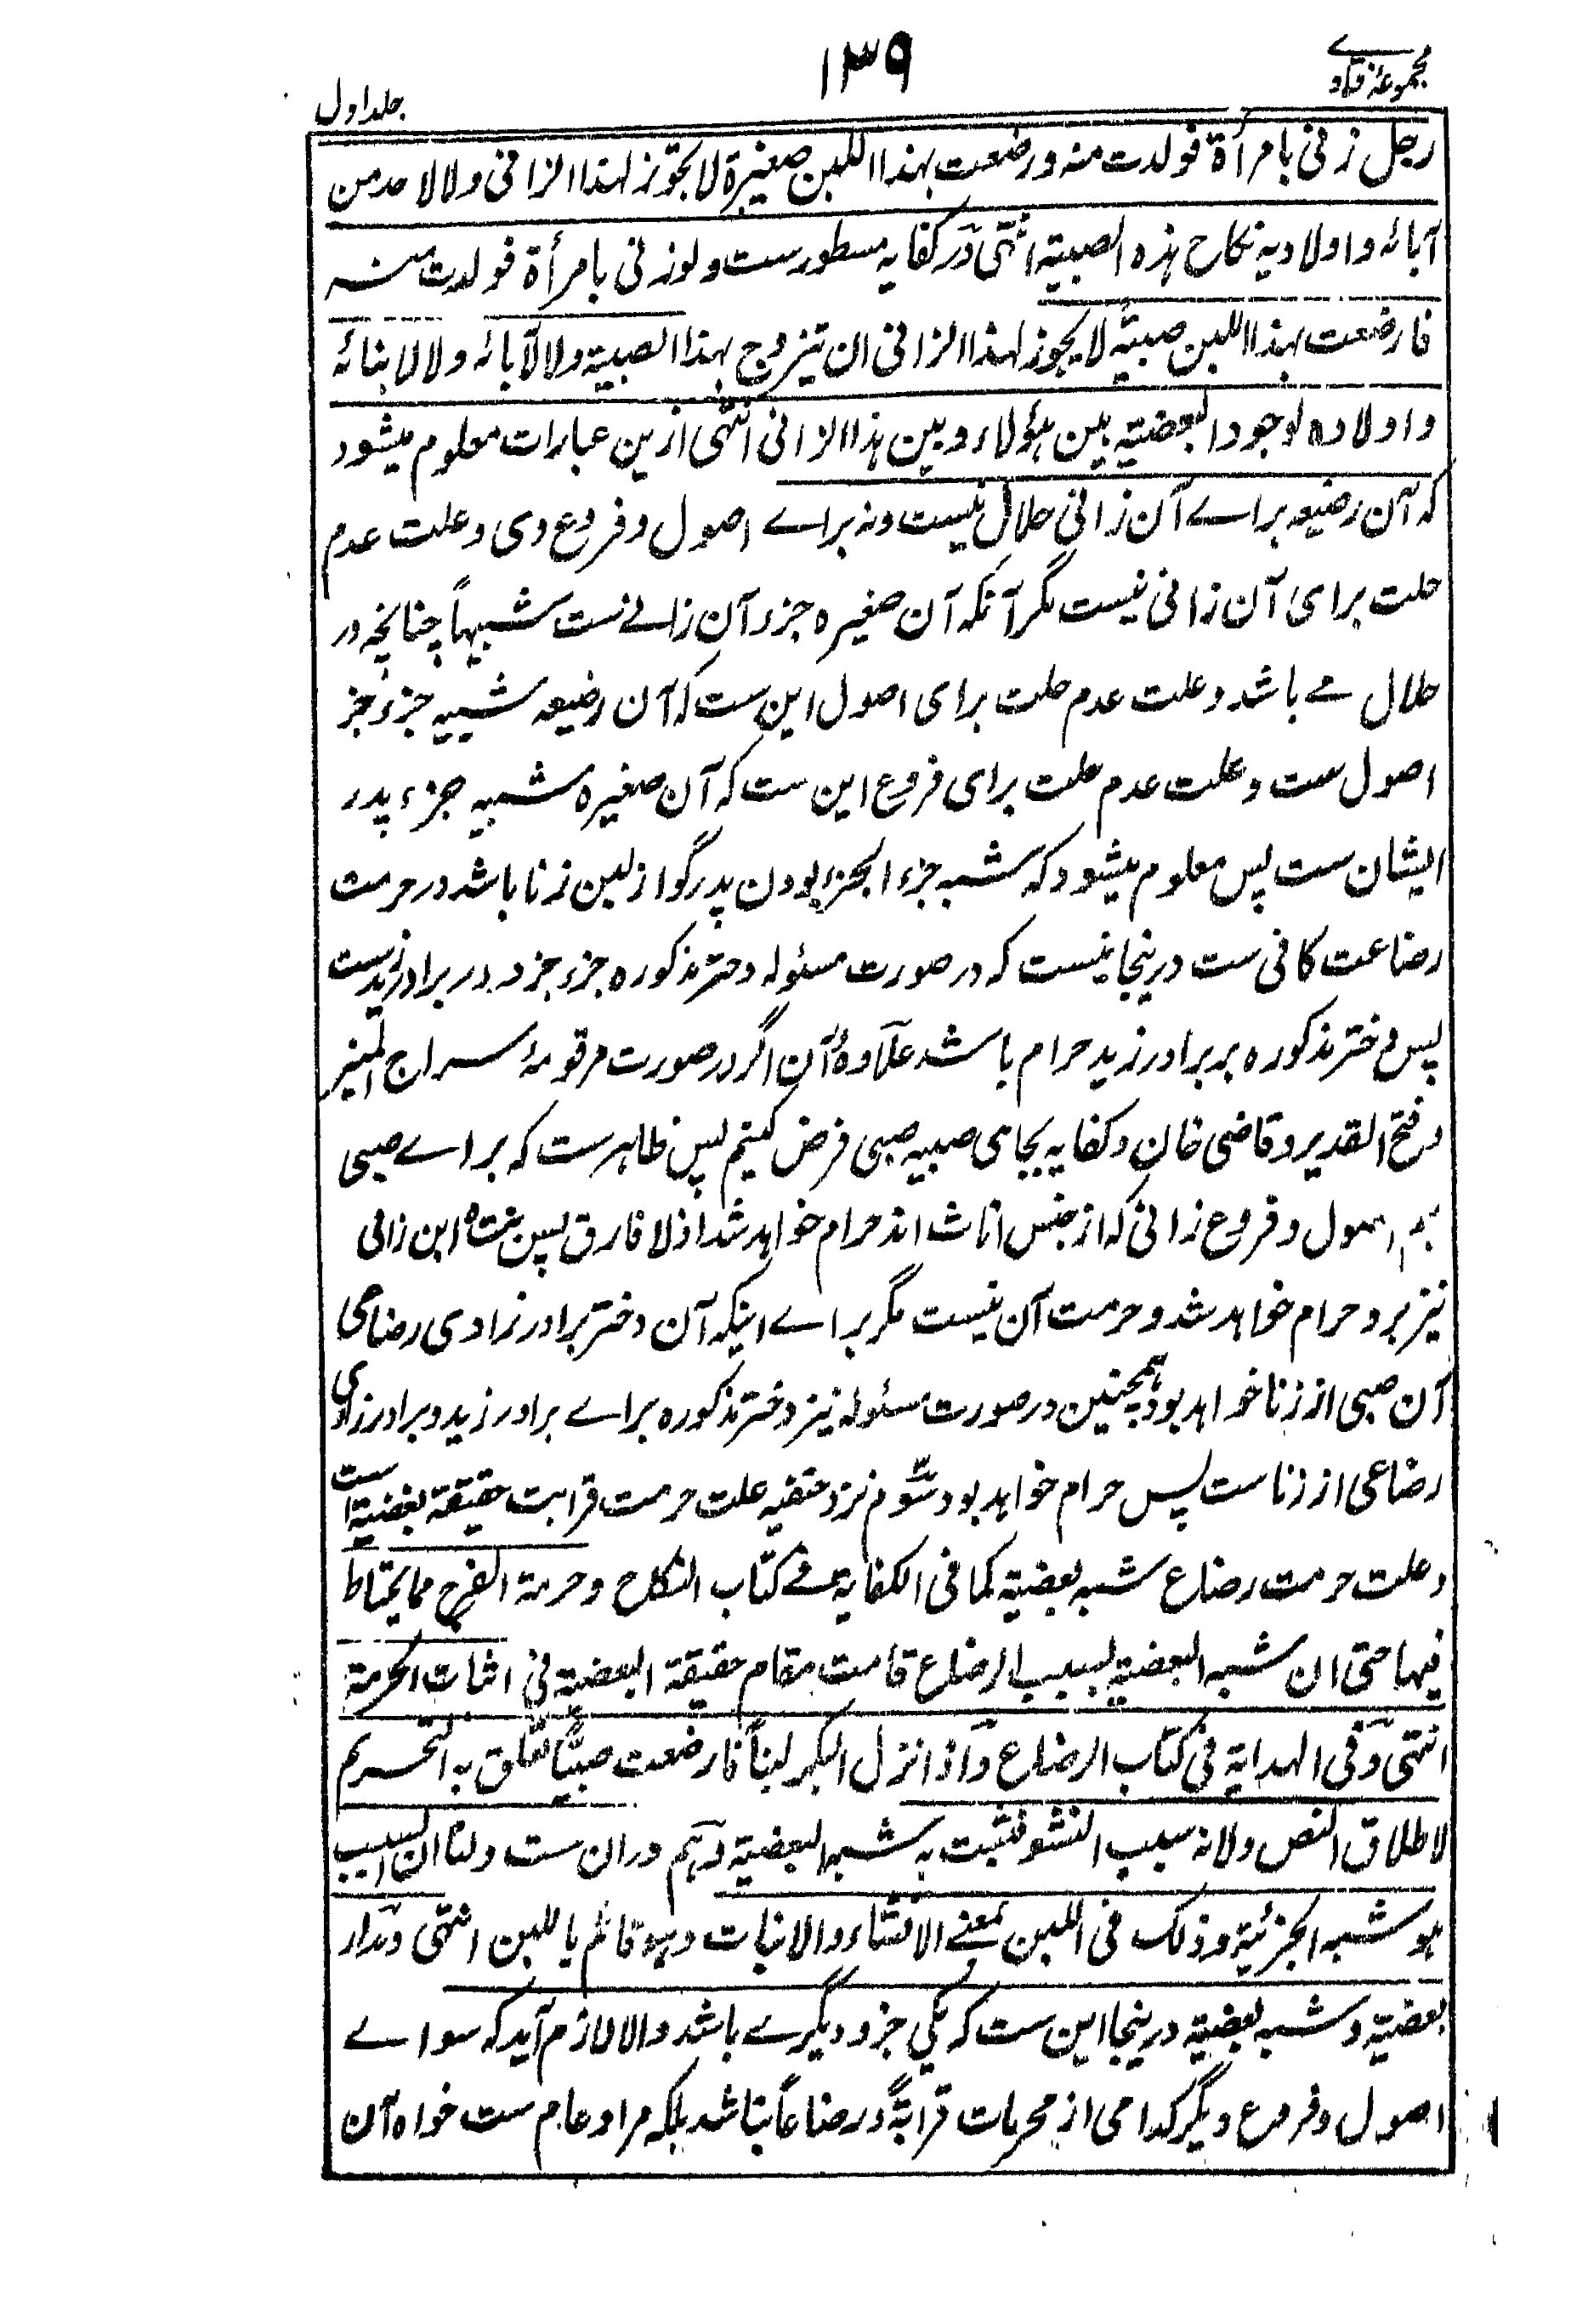 مجموعۂ فتاوے
۱۳۹
جلد اول
رجل زنی بامرأة فولدت منه ورضعت بهذا اللبن صغیرة لا یجوز لهذا الزانی ولا لاحد من
آبائه واولاده نکاح هذه الصبیة انتهی و در کفایه مسطور ست ولو زنی بامرأة فولدت منه
فارضعت بهذا اللبن صبیة لا یجوز لهذا الزانی ان یتزوج بهذا الصبیة ولا لآبائه ولا لابنائه
واولاده لوجود البعضیة بین هؤلاء وبین هذا الزانی انتهی ازین عبارات معلوم میشود
که آن رضیعه براے آن زانی حلال نیست ونه براے اصول وفروع وی وعلت عدم
حلت برای آن زانی نیست مگر آنکه آن صغیره جزء آن زانے ست شبیهاً چنانچه در
حلال مے باشد وعلت عدم حلت برای اصول این ست که آن رضیعه شبیه جزء جز
اصول ست وعلت عدم حلت برای فروع این ست که آن صغیره شبیه جزء پدر
ایشان ست پس معلوم میشود که شبه جزء الجزء بودن پدر گو از لبن زنا باشد در حرمت
رضاعت کافی ست درینجا نیست که در صورت مسئوله دختر مذکوره جزء جزء برادر زید ست
پس دختر مذکوره بر برادر زید حرام باشد علاوهٔ آن اگر در صورت مرقومهٔ سراج المنیر
وفتح القدیر وقاضی خان وکفایه بجای صبیه صبی فرض کنیم پس ظاهر ست که براے صبی
اصول وفروع زانی که از جنس اناث اند حرام خواهد شد اذ لا فارق پس بنت ابن زانی
نیز برو حرام خواهد شد وحرمت آن نیست مگر براے اینکه آن دختر برادر زادی رضاعی
آن صبی از زنا خواهد بود همچنین در صورت مسئوله نیز دختر مذکوره براے برادر زید وبرادر زادی
رضاعی از زنا ست پس حرام خواهد بود سوم نزد حنفیه علت حرمت قرابت حقیقة بعضیة است
وعلت حرمت رضاع شبه بعضیة کما فی الکفایة فے کتاب النکاح وحرمة الفرج مما یحتاط
فیها حتی ان شبه البعضیة بسبب الرضاع قامت مقام حقیقة البعضیة فی اثبات الحرمة
انتهی وفی الهدایة فی کتاب الرضاع واذا نزل البکر لبناً فارضعت صبیاً تعلق به التحریم
لاطلاق النص ولانه سبب النشو فتثبت به شبه البعضیة وهم دران ست ولنا ان السبب
هو شبه الجزئیة وذلک فی اللبن بمعنے الانشاء والانبات وهو قائم باللبن انتهی ومدار
بعضیة وشبه بعضیة درینجا این ست که یکی جزو دیگرے باشد والا لازم آید که سواے
اصول وفروع دیگر کدامی از محرمات قرابةً ورضاعاً نباشد بلکه مراد عام ست خواه آن